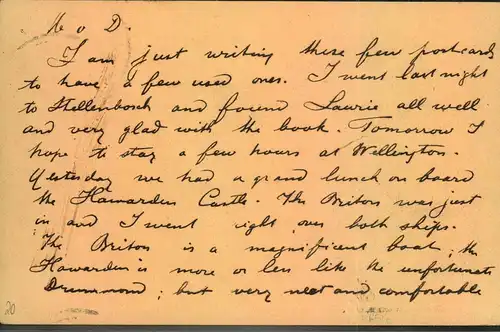 M v D.
I am just writing these few postcards
to have a few used ones. I went last night
to Stellenbosch and found Laurie all well
and very glad with the book. Tomorrow I
hope to stay a few hours at Wellington.
Yesterday we had a grand lunch on board
the Hawarden Castle. The Briton was just
in and I went right over both ships.
The Briton is a magnificent boat; the
Hawarden is more or less like the unfortunate
Drummond; but very neat and comfortable
20